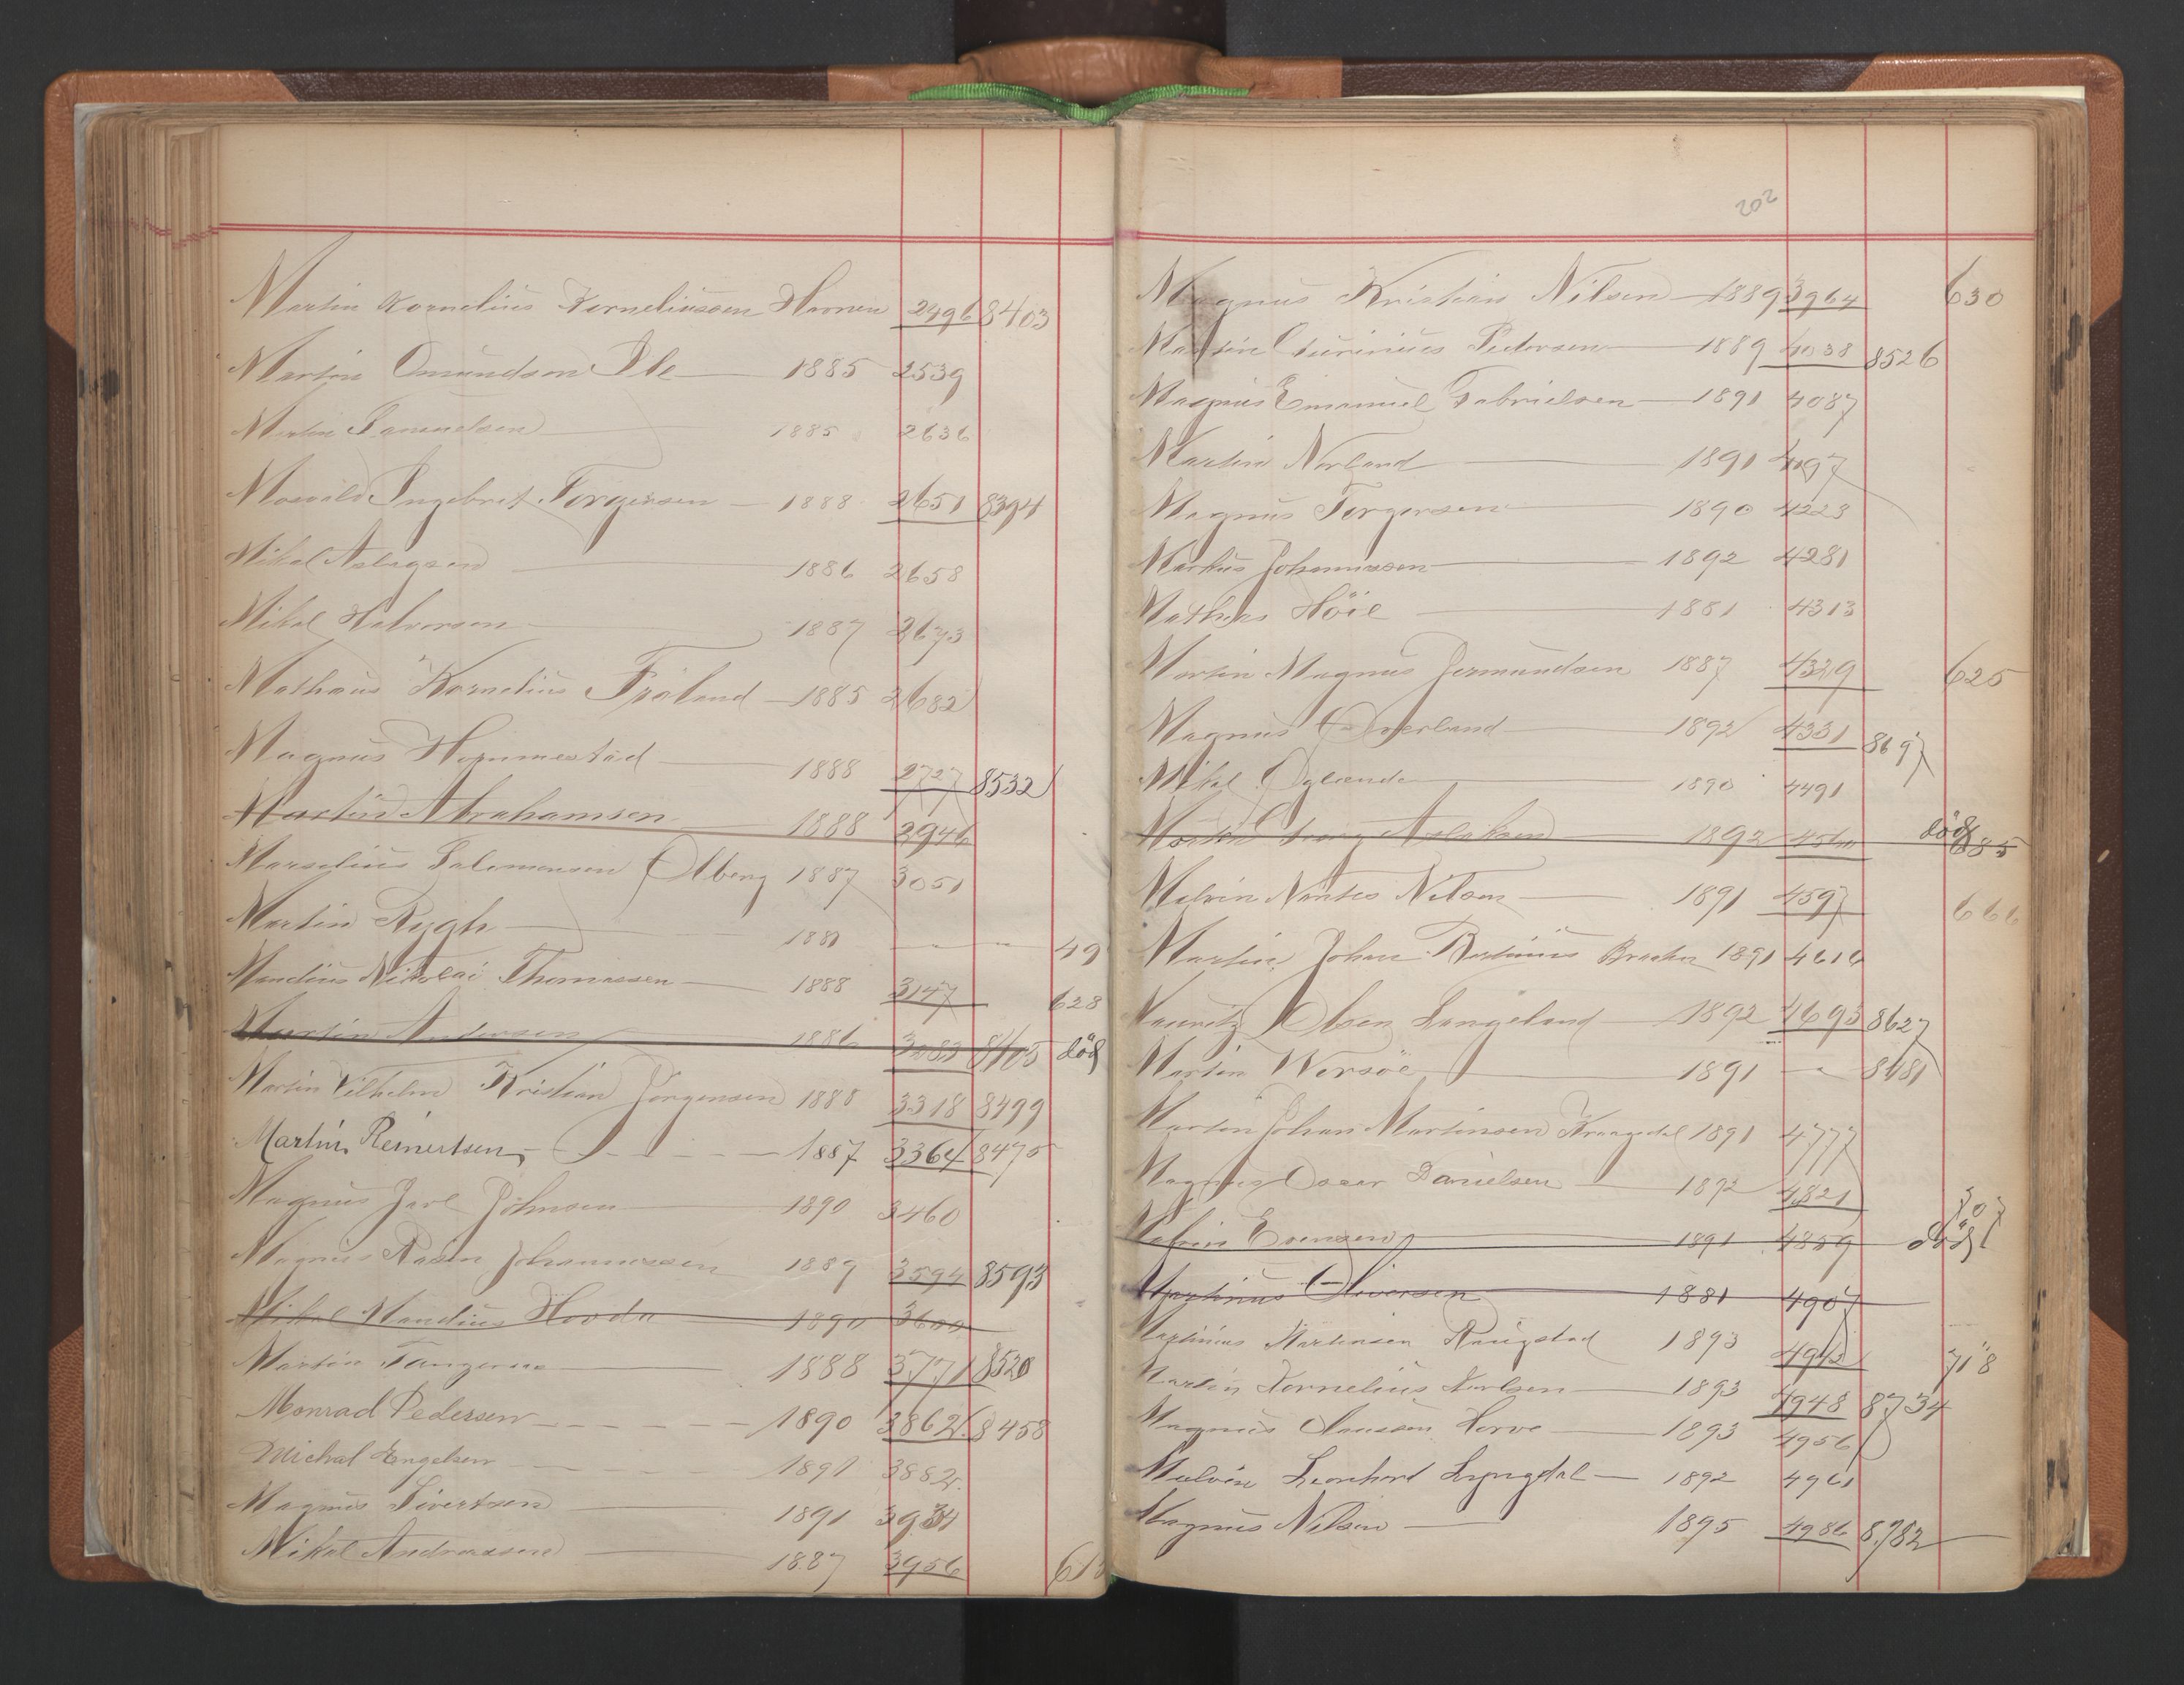 Martin Kornelius Korneliussen Havnen 2496 8403
Martin Omundsen 1885 2539
Martin Samuelsen 1885 2636
Ingebret Torgersen 1888 2651 8394
Mikal Aslagsen 1886 2658
Mikal Halvorsen 1887 2673
Mathæus Kornelius Fröland 1885 2682
Magnus Hommestad 1888 2727 8532
Martin Abrahamsen 1888 2946
Marselius Salomonsen Ølberg 1887 3051
Martin Rygh 1881 49
Mandius Nikolai Thomassen 1888 3147 628
Martin Andersen 1886 3083 8405 död
Martin Vilhelm Kristian Jörgensen 1888 3318 8499
Martin Reinertsen 1887 3364 8475
Magnus Jarl Johnsen 1890 3460
Magnus Johannessen 1889 3594 8593
Mikal Mandius Hovda 1890 3600
Martin Tangeraas 1888 3771 8520
Monrad Pedersen 1890 3862 8458
Michal Engelsen 1891 3882
Magnus Sivertsen 1891 3934
Mikal Andreassen 1887 3956
202
Magnus Kristian Nilsen 1889 3964 630
Martin Pedersen 1889 4038 8526
Magnus Emanuel Gabrielsen 1891 4087
Martin Norland 1891 4197
Magnus Torgersen 1890 4223
Markus Johannessen 1892 4281
Mathias Höie 1881 4313
Martin Magnus Jermundsen 1887 4329 625
Magnus Overland 1892 4331 8697
Mikal Oglænde 1890 4491
Aslaksen 1892 död 685
Melvin Nilsen 1891 4597 666
Martin Johan 1891 4616
Mauritz Olsen Langeland 1892 4693 8627
Martin Worsöe 1891 8481
Martin Johan Martinsen 1891 4777
Magnus Oscar Danielsen 1892 4821 707
Evensen 1891 4859 död
Martinus Iversen 1881 4907
Martinius Mortensen Raugstad 1893 4942 718
Martin Kornelius Karlsen 1893 4948 8734
Magnus Claussen 1893 4956
Malvin Leonhard Lyngdal 1892 4961
Magnus Nilsen 1895 4986 8782